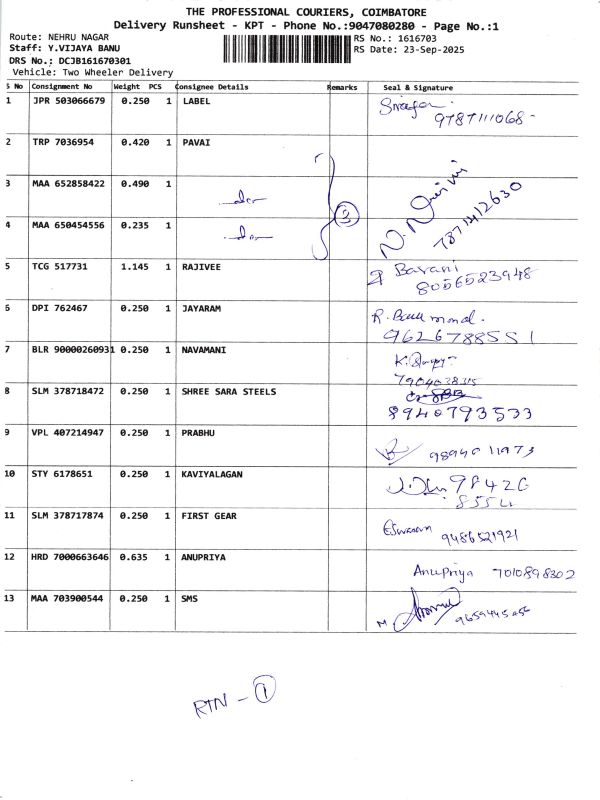 THE PROFESSIONAL COURIERS, COIMBATORE
Delivery Runsheet - KPT - Phone No.:9047080280 - Page No.:1
Route: NEHRU NAGAR
Staff: Y.VIJAYA BANU
DRS No.: DCJB161670301
Vehicle: Two Wheeler Delivery
RS No.: 1616703
RS Date: 23-Sep-2025
S No Consignment No Weight PCS Consignee Details Remarks Seal & Signature
1 JPR 503066679 0.250 1 LABEL
9787111068-
2 TRP 7036954 0.420 1 PAVAI
3 MAA 652858422 0.490 1
4 MAA 650454556 0.235 1
3
7871412630
5 TCG 517731 1.145 1 RAJIVEE Barani
8056523948
6 DPI 762467 0.250 1 JAYARAM
9626788551
7 BLR 90000260931 0.250 1 NAVAMANI
7904038315
8 SLM 378718472 0.250 1 SHREE SARA STEELS
8940793533
9 VPL 407214947 0.250 1 PRABHU
9894611973
10 STY 6178651 0.250 1 KAVIYALAGAN
11 SLM 378717874 0.250 1 FIRST GEAR
9486521921
12 HRD 7000663646 0.635 1 ANUPRIYA Anupriya 7010898302
13 MAA 703900544 0.250 1 SMS
RTN - 1